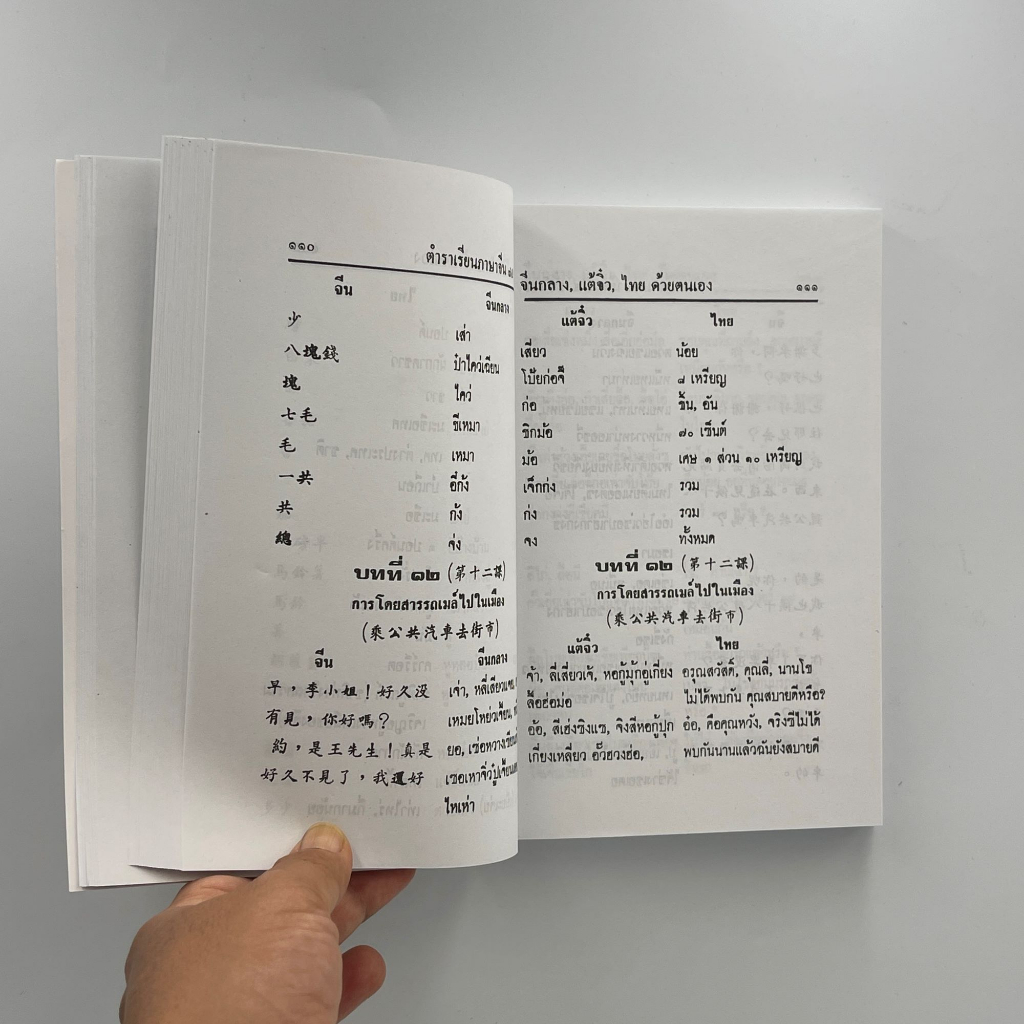 ๑๑๐
ตำราเรียนภาษาจีน
จีน จีนกลาง
少 เส่า
八塊錢 ป๋าไคว่เฉียน
塊 ไคว่
七毛 ชีเหมา
毛 เหมา
一共 อี๋กัง
共 กัง
總 จ่ง
บทที่ ๑๒ (第十二課)
การโดยสารรถเมล์ไปในเมือง
(乘公共汽車去街市)
จีน จีนกลาง
早，李小姐！好久没 เจ่า, หลี่เสียว
有見，你好嗎？ เหมยโหย่วเจี้ยน,
約，是王先生！真是 ยอ, เซ่อหวาง
好久不見了，我還好 เซอเหาจิ่วปู๋เจี้ยน
ไหเห่า
จีนกลาง, แต้จิ๋ว, ไทย ด้วยตนเอง ๑๑๑
แต้จิ๋ว ไทย
เสี่ยว น้อย
โป้ยก่อจี๊ ๘ เหรียญ
ก่อ ชิ้น, อัน
ชิกม้อ ๗๐ เซ็นต์
ม้อ เศษ ๑ ส่วน ๑๐ เหรียญ
เจ็กก่ง รวม
ก่ง รวม
จง ทั้งหมด
บทที่ ๑๒ (第十二課)
การโดยสารรถเมล์ไปในเมือง
(乘公共汽車去街市)
แต้จิ๋ว ไทย
จ้า, ลี่เสี่ยวเจ้, หอกู้มุ้กอู่เกี่ยง อรุณสวัสดิ์, คุณลี่, นานโข
ลื้อฮ่อม่อ ไม่ได้พบกัน คุณสบายดีหรือ?
อ้อ, สี่เฮ่งซิงแซ, จิงสี่หอกู้ปุก อ๋อ, คือคุณหวัง, จริงซีไม่ได้
เกี่ยงเหลี่ยว อั๊วฮวงฮ่อ, พบกันนานแล้วฉันยังสบายดี